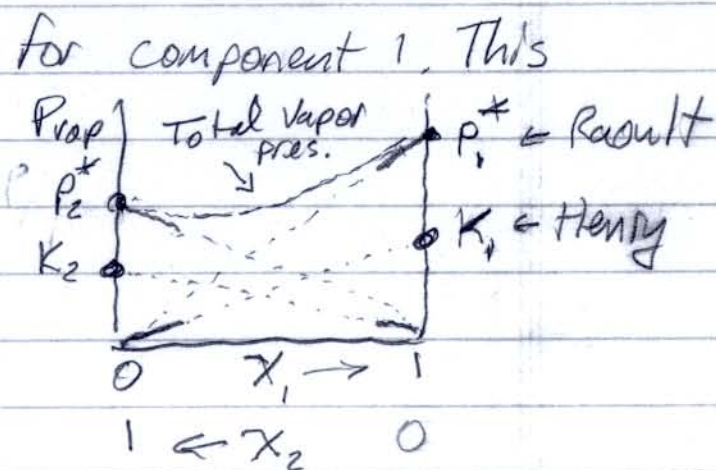 for component 1. This
Pvap Total Vapor
pres.
P₁* ← Raoult
P₂*
K₂
K₁ ← Henry
0 X₁ → 1
1 ← X₂ 0